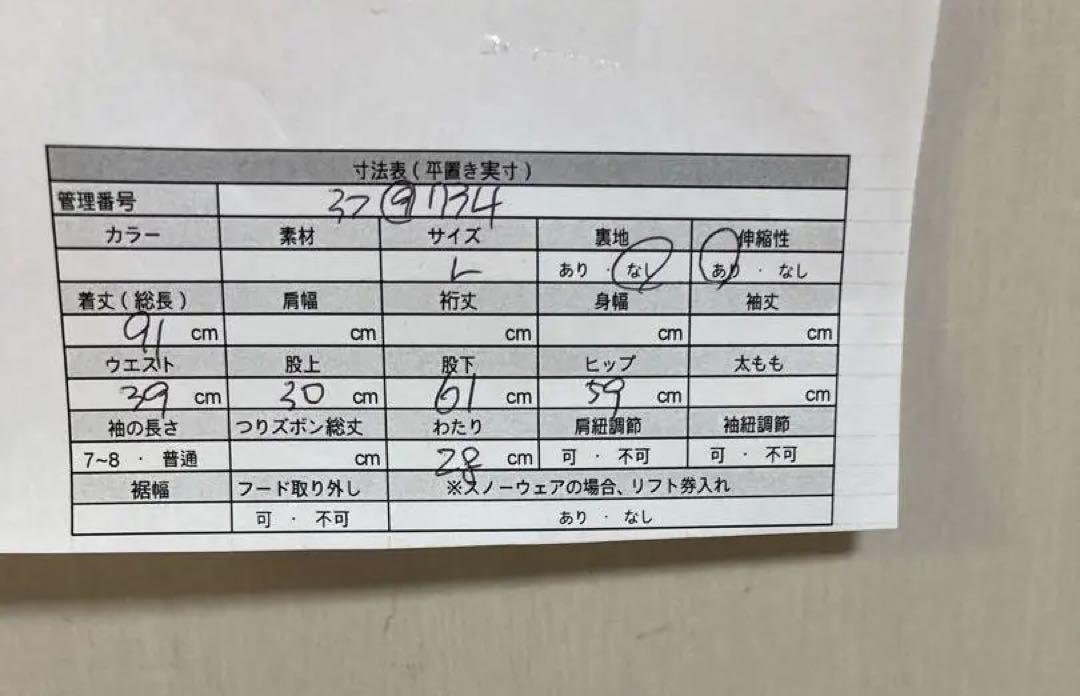 寸法表(平置き実寸)
管理番号 37 9 1734
カラー 素材 サイズ 裏地 伸縮性
L あり・なし あり・なし
着丈(総長) 肩幅 裄丈 身幅 袖丈
91 cm cm cm cm cm
ウエスト 股上 股下 ヒップ 太もも
39 cm 30 cm 61 cm 59 cm cm
袖の長さ つりズボン総丈 わたり 肩紐調節 袖紐調節
7~8・普通 cm 28 cm 可・不可 可・不可
裾幅 フード取り外し ※スノーウェアの場合、リフト券入れ
可・不可 あり・なし